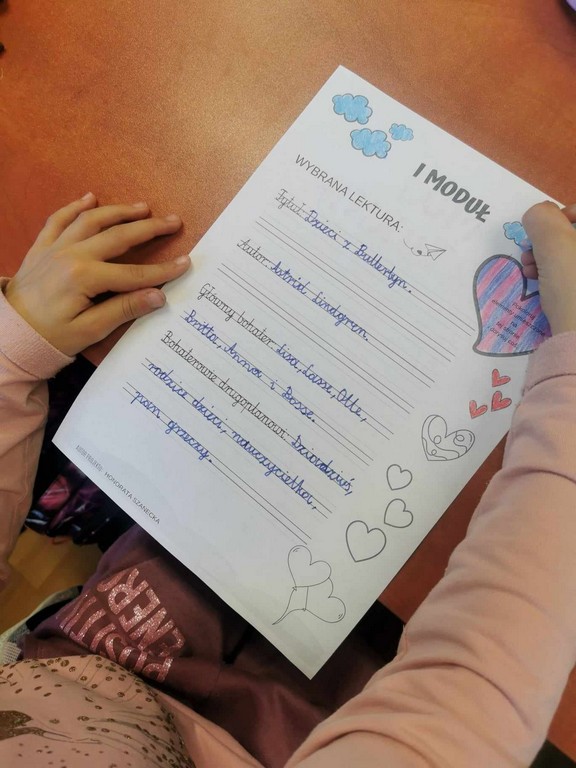 I MODUŁ
WYBRANA LEKTURA:
Tytuł Dzieci z Bullerbyn.
Autor Astrid Lindgren.
Główny bohater Lisa, Lasse, Olle,
Britta, Anna i Bosse.
Bohaterowie drugoplanowi: Dziadziuś,
rodzice dzieci, nauczycielka,
pan grzeczny.
HONORATA SZANECKA